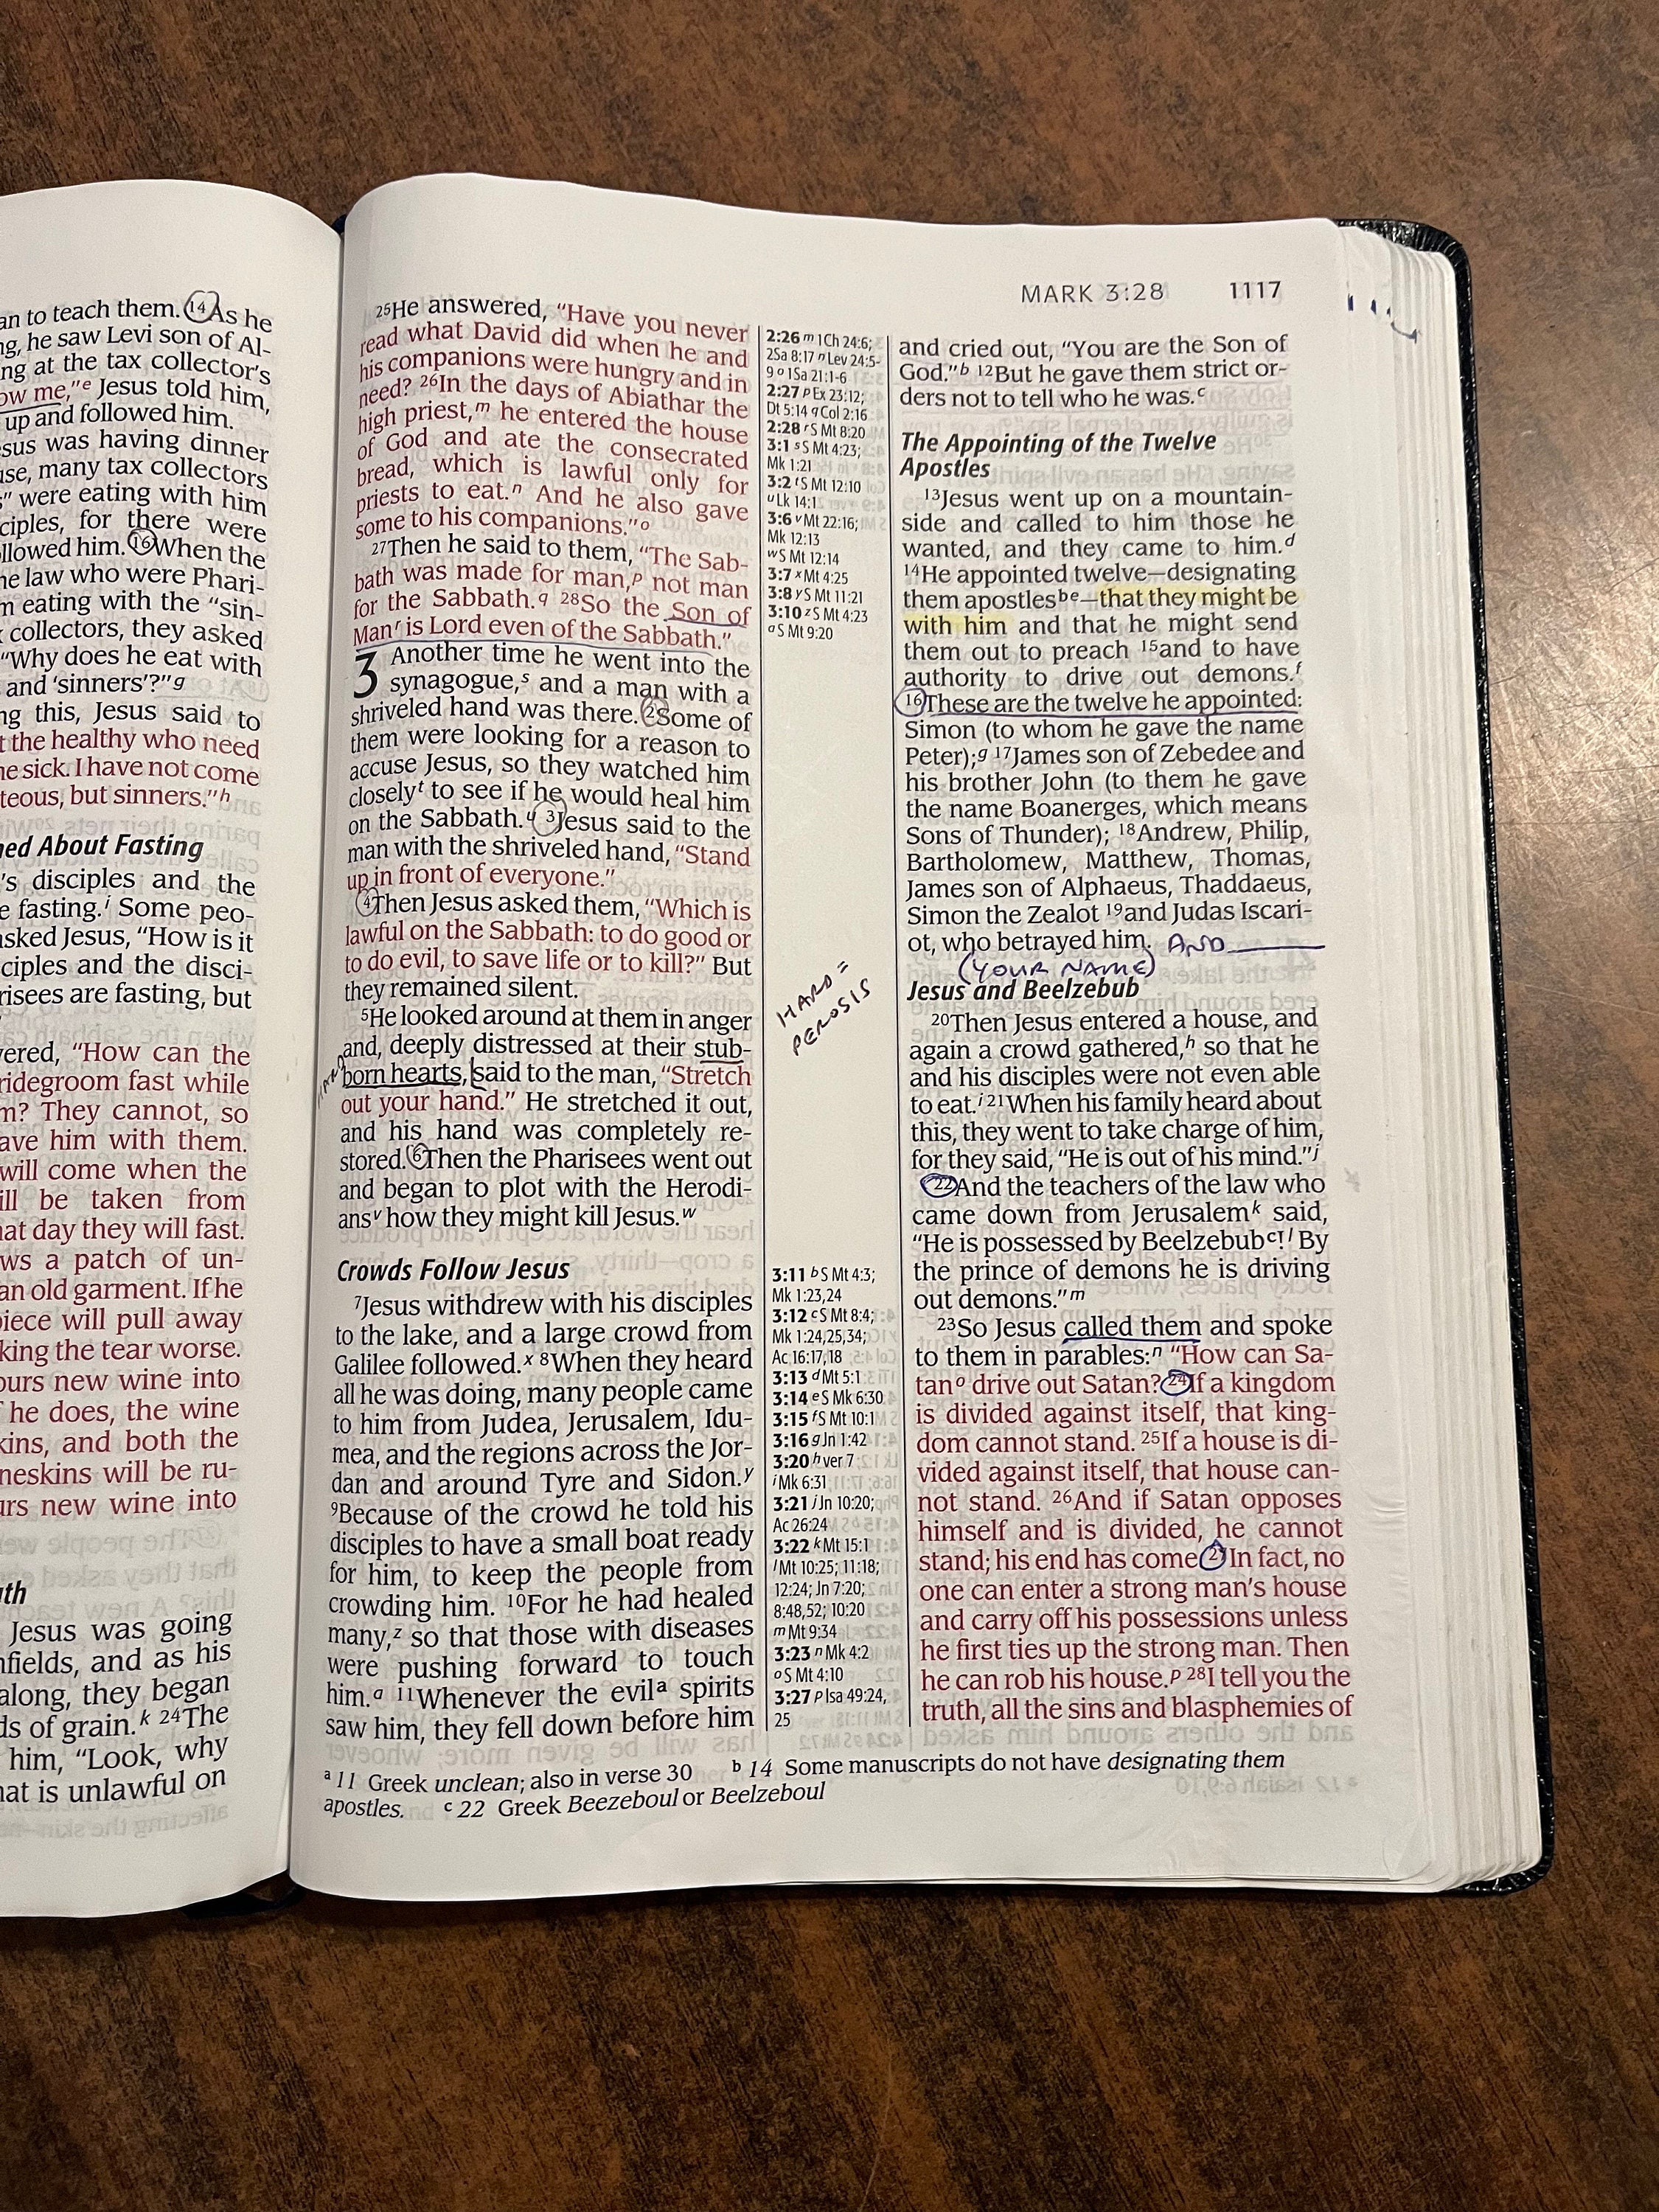 an to teach them. 14As he
ng, he saw Levi son of Al-
ng at the tax collector's
ow me,"e Jesus told him,
up and followed him.
sus was having dinner
use, many tax collectors
" were eating with him
ciples, for there were
llowed him. 16When the
he law who were Phari-
m eating with the "sin-
x collectors, they asked
"Why does he eat with
and 'sinners'?"g
ng this, Jesus said to
t the healthy who need
he sick. I have not come
teous, but sinners."h
ned About Fasting
's disciples and the
e fasting.i Some peo-
asked Jesus, "How is it
ciples and the disci-
risees are fasting, but
vered, "How can the
ridegroom fast while
m? They cannot, so
ave him with them.
will come when the
ill be taken from
hat day they will fast.
ws a patch of un-
an old garment. If he
piece will pull away
king the tear worse.
ours new wine into
f he does, the wine
kins, and both the
neskins will be ru-
urs new wine into
ath
Jesus was going
nfields, and as his
along, they began
ds of grain.k 24The
him, "Look, why
hat is unlawful on
25He answered, "Have you never
read what David did when he and
his companions were hungry and in
need? 26In the days of Abiathar the
high priest,m he entered the house
of God and ate the consecrated
bread, which is lawful only for
priests to eat.n And he also gave
some to his companions."o
27Then he said to them, "The Sab-
bath was made for man,p not man
for the Sabbath.q 28So the Son of
Manr is Lord even of the Sabbath."
3 Another time he went into the
synagogue,s and a man with a
shriveled hand was there. 2Some of
them were looking for a reason to
accuse Jesus, so they watched him
closelyt to see if he would heal him
on the Sabbath.u 3Jesus said to the
man with the shriveled hand, "Stand
up in front of everyone."
4Then Jesus asked them, "Which is
lawful on the Sabbath: to do good or
to do evil, to save life or to kill?" But
they remained silent.
5He looked around at them in anger
and, deeply distressed at their stub-
HARD
born hearts, said to the man, "Stretch
out your hand." He stretched it out,
and his hand was completely re-
stored. 6Then the Pharisees went out
and began to plot with the Herodi-
ansv how they might kill Jesus.w
Crowds Follow Jesus
7Jesus withdrew with his disciples
to the lake, and a large crowd from
Galilee followed.x 8When they heard
all he was doing, many people came
to him from Judea, Jerusalem, Idu-
mea, and the regions across the Jor-
dan and around Tyre and Sidon.y
9Because of the crowd he told his
disciples to have a small boat ready
for him, to keep the people from
crowding him. 10For he had healed
many,z so that those with diseases
were pushing forward to touch
him.a 11Whenever the evila spirits
saw him, they fell down before him
2:26 m 1Ch 24:6;
2Sa 8:17 n Lev 24:5-
9 o 1Sa 21:1-6
2:27 p Ex 23:12;
Dt 5:14 q Col 2:16
2:28 r S Mt 8:20
3:1 s S Mt 4:23;
Mk 1:21
3:2 t S Mt 12:10
u Lk 14:1
3:6 v Mt 22:16;
Mk 12:13
w S Mt 12:14
3:7 x Mt 4:25
3:8 y S Mt 11:21
3:10 z S Mt 4:23
a S Mt 9:20
HARD =
PEROSIS
3:11 b S Mt 4:3;
Mk 1:23,24
3:12 c S Mt 8:4;
Mk 1:24,25,34;
Ac 16:17,18
3:13 d Mt 5:1
3:14 e S Mk 6:30
3:15 f S Mt 10:1
3:16 g Jn 1:42
3:20 h ver 7
i Mk 6:31
3:21 j Jn 10:20;
Ac 26:24
3:22 k Mt 15:1
l Mt 10:25; 11:18;
12:24; Jn 7:20;
8:48,52; 10:20
m Mt 9:34
3:23 n Mk 4:2
o S Mt 4:10
3:27 p Isa 49:24,
25
MARK 3:28 1117
and cried out, "You are the Son of
God."b 12But he gave them strict or-
ders not to tell who he was.c
The Appointing of the Twelve
Apostles
13Jesus went up on a mountain-
side and called to him those he
wanted, and they came to him.d
14He appointed twelve—designating
them apostlesbe—that they might be
with him and that he might send
them out to preach 15and to have
authority to drive out demons.f
16These are the twelve he appointed:
Simon (to whom he gave the name
Peter);g 17James son of Zebedee and
his brother John (to them he gave
the name Boanerges, which means
Sons of Thunder); 18Andrew, Philip,
Bartholomew, Matthew, Thomas,
James son of Alphaeus, Thaddaeus,
Simon the Zealot 19and Judas Iscari-
ot, who betrayed him. AND______
(YOUR NAME)
Jesus and Beelzebub
20Then Jesus entered a house, and
again a crowd gathered,h so that he
and his disciples were not even able
to eat.i 21When his family heard about
this, they went to take charge of him,
for they said, "He is out of his mind."j
22And the teachers of the law who
came down from Jerusalemk said,
"He is possessed by Beelzebubc!l By
the prince of demons he is driving
out demons."m
23So Jesus called them and spoke
to them in parables:n "How can Sa-
tano drive out Satan? 24If a kingdom
is divided against itself, that king-
dom cannot stand. 25If a house is di-
vided against itself, that house can-
not stand. 26And if Satan opposes
himself and is divided, he cannot
stand; his end has come. 27In fact, no
one can enter a strong man's house
and carry off his possessions unless
he first ties up the strong man. Then
he can rob his house.p 28I tell you the
truth, all the sins and blasphemies of
a 11 Greek unclean; also in verse 30 b 14 Some manuscripts do not have designating them
apostles. c 22 Greek Beezeboul or Beelzeboul